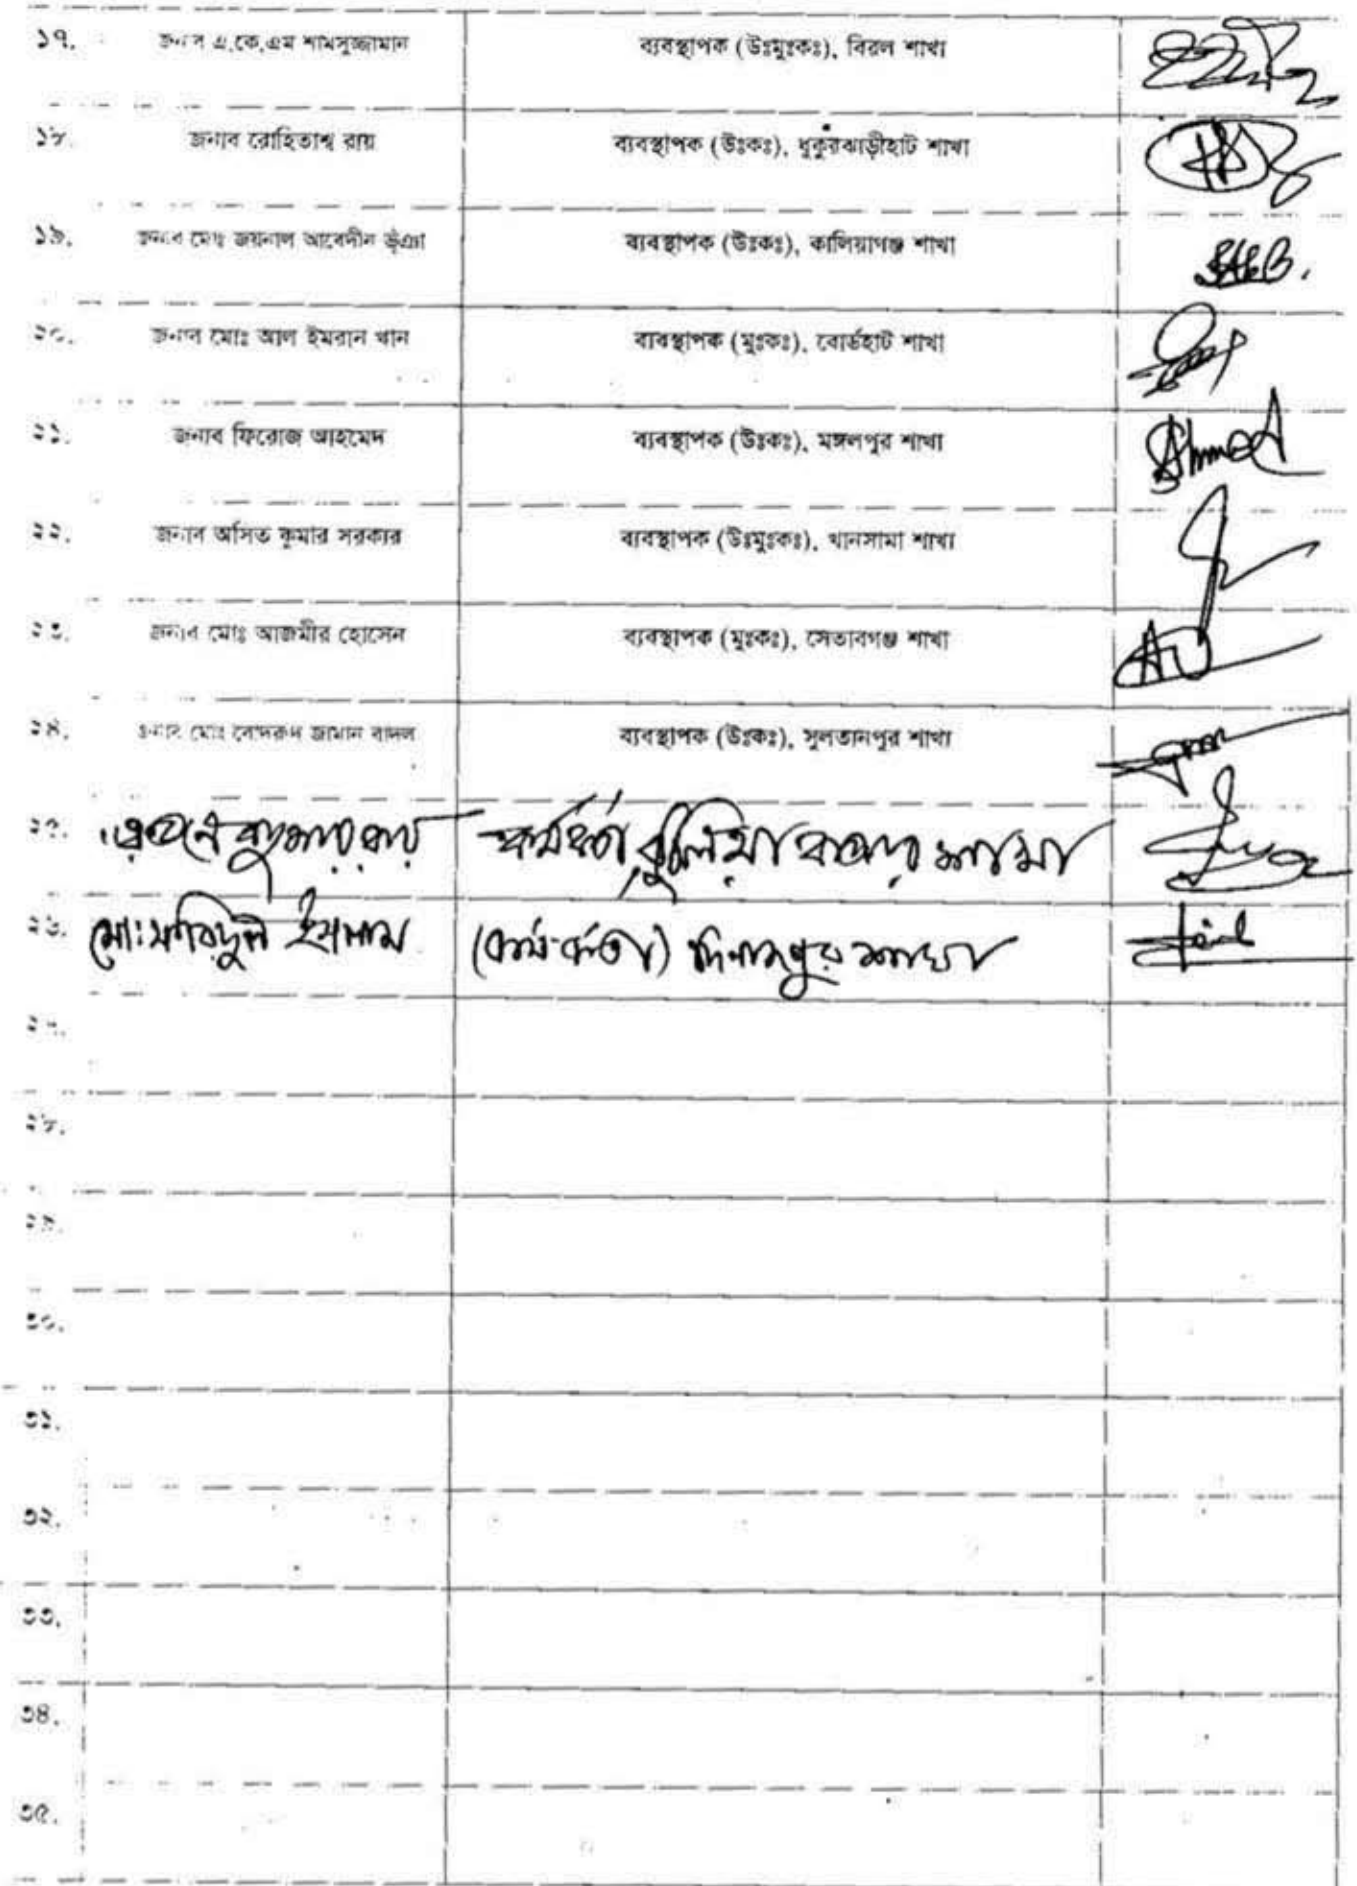 ১৭. জনাব এ.কে.এম শামসুজ্জামান ব্যবস্থাপক (উঃমুঃকঃ), বিরল শাখা
১৮. জনাব রোহিতাশ্ব রায় ব্যবস্থাপক (উঃকঃ), ধুকুরঝাড়ীহাট শাখা
১৯. জনাব মোঃ জয়নাল আবেদীন ভূঁঞা ব্যবস্থাপক (উঃকঃ), কালিয়াগঞ্জ শাখা
২০. জনাব মোঃ আল ইমরান খান ব্যবস্থাপক (মুঃকঃ), বোর্ডহাট শাখা
২১. জনাব ফিরোজ আহমেদ ব্যবস্থাপক (উঃকঃ), মঙ্গলপুর শাখা Ahmed
২২. জনাব অসিত কুমার সরকার ব্যবস্থাপক (উঃমুঃকঃ), খানসামা শাখা
২৩. জনাব মোঃ আজমীর হোসেন ব্যবস্থাপক (মুঃকঃ), সেতাবগঞ্জ শাখা
২৪. জনাব মোঃ জামান বাদল ব্যবস্থাপক (উঃকঃ), সুলতানপুর শাখা
২৫. কুমার রায় কর্মকর্তা, শাখা
২৬. মোঃ ফরিদুল ইসলাম (কর্মকর্তা) দিনাজপুর শাখা
২৭.
২৮.
২৯.
৩০.
৩১.
৩২.
৩৩.
৩৪.
৩৫.